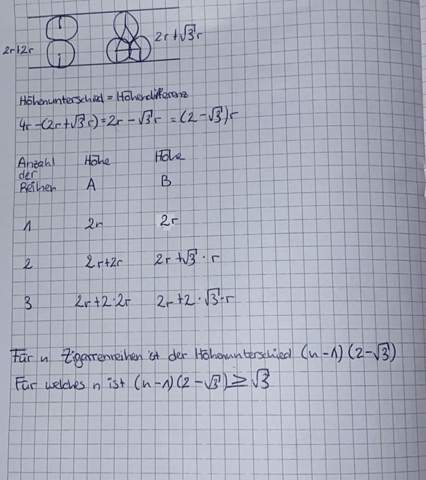 2r+2r 2r+√3 r
Höhenunterschied = Höhendifferenz
4r-(2r+√3 r)=2r-√3 r =(2-√3)r
Anzahl der Reihen Höhe A Höhe B
1 2r 2r
2 2r+2r 2r+√3 · r
3 2r+2·2r 2r+2·√3·r
Für n Zigarrenreihen ist der Höhenunterschied (n-1)(2-√3)
Für welches n ist (n-1)(2-√3)≥√3